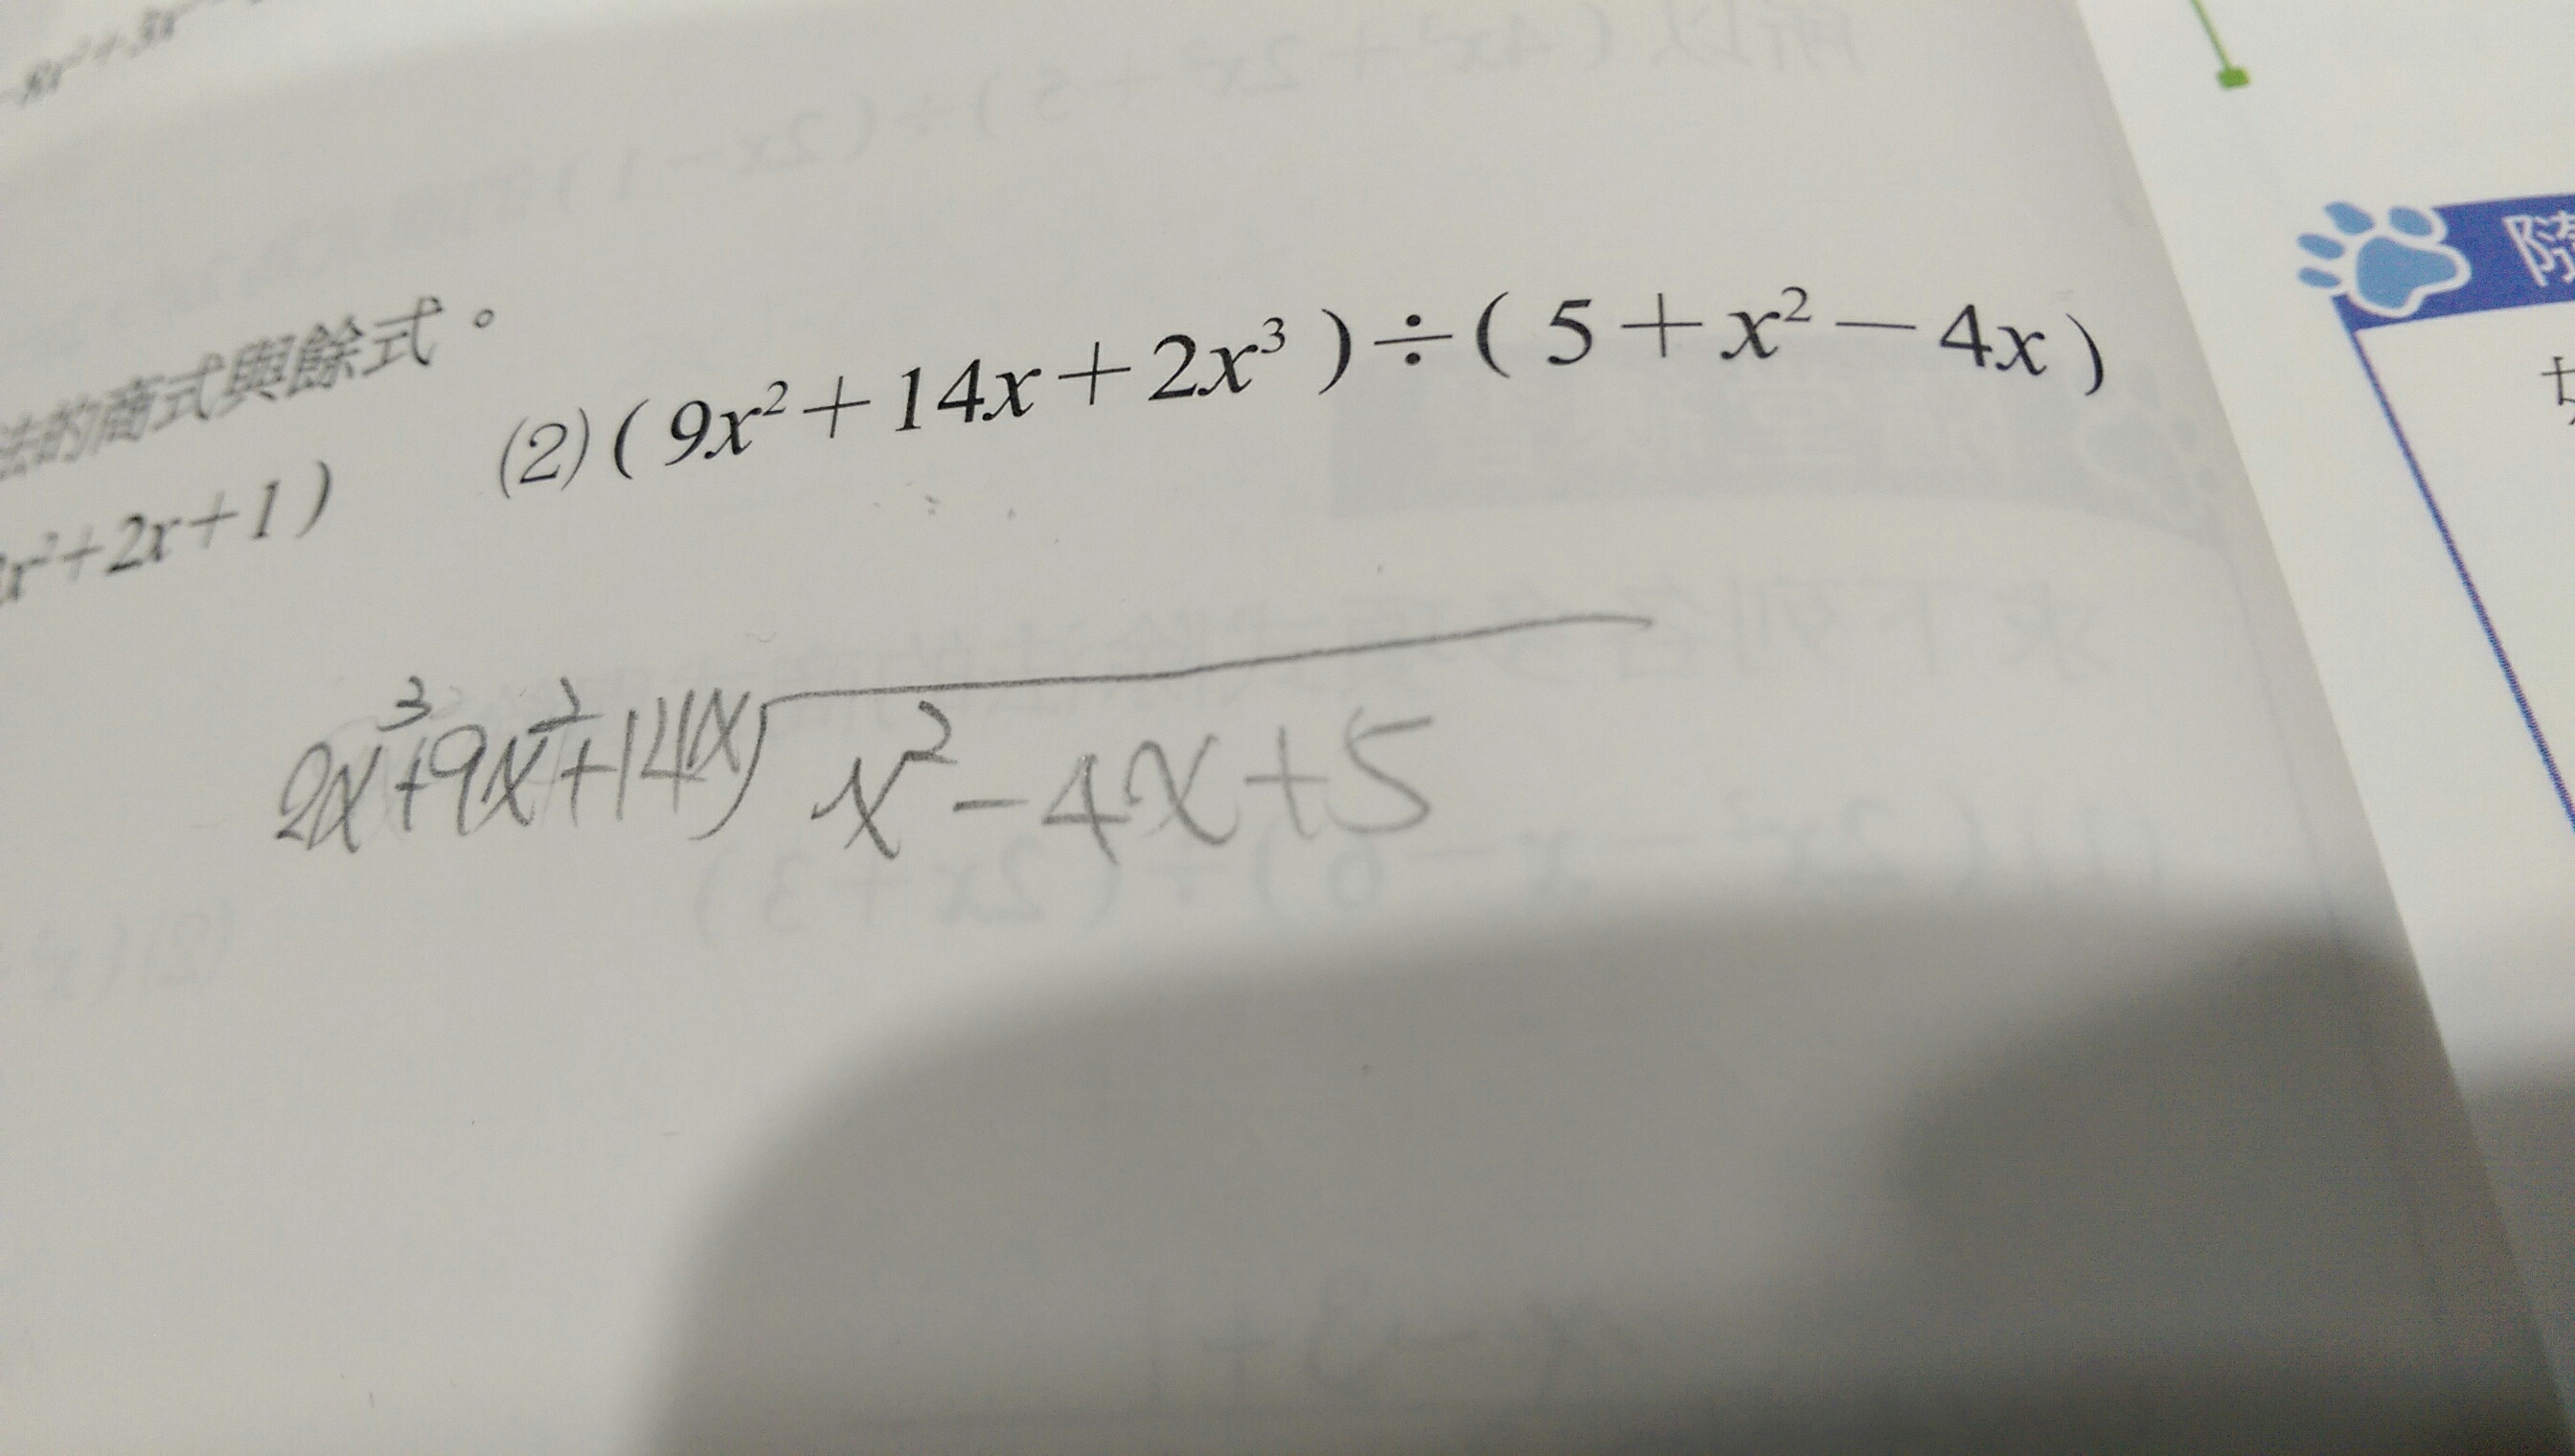 -8x²+3x
法的商式與餘式。
x²+2x+1)
(2)(9x²+14x+2x³)÷(5+x²-4x)
隨
2x³+9x²+14x)x²-4x+5